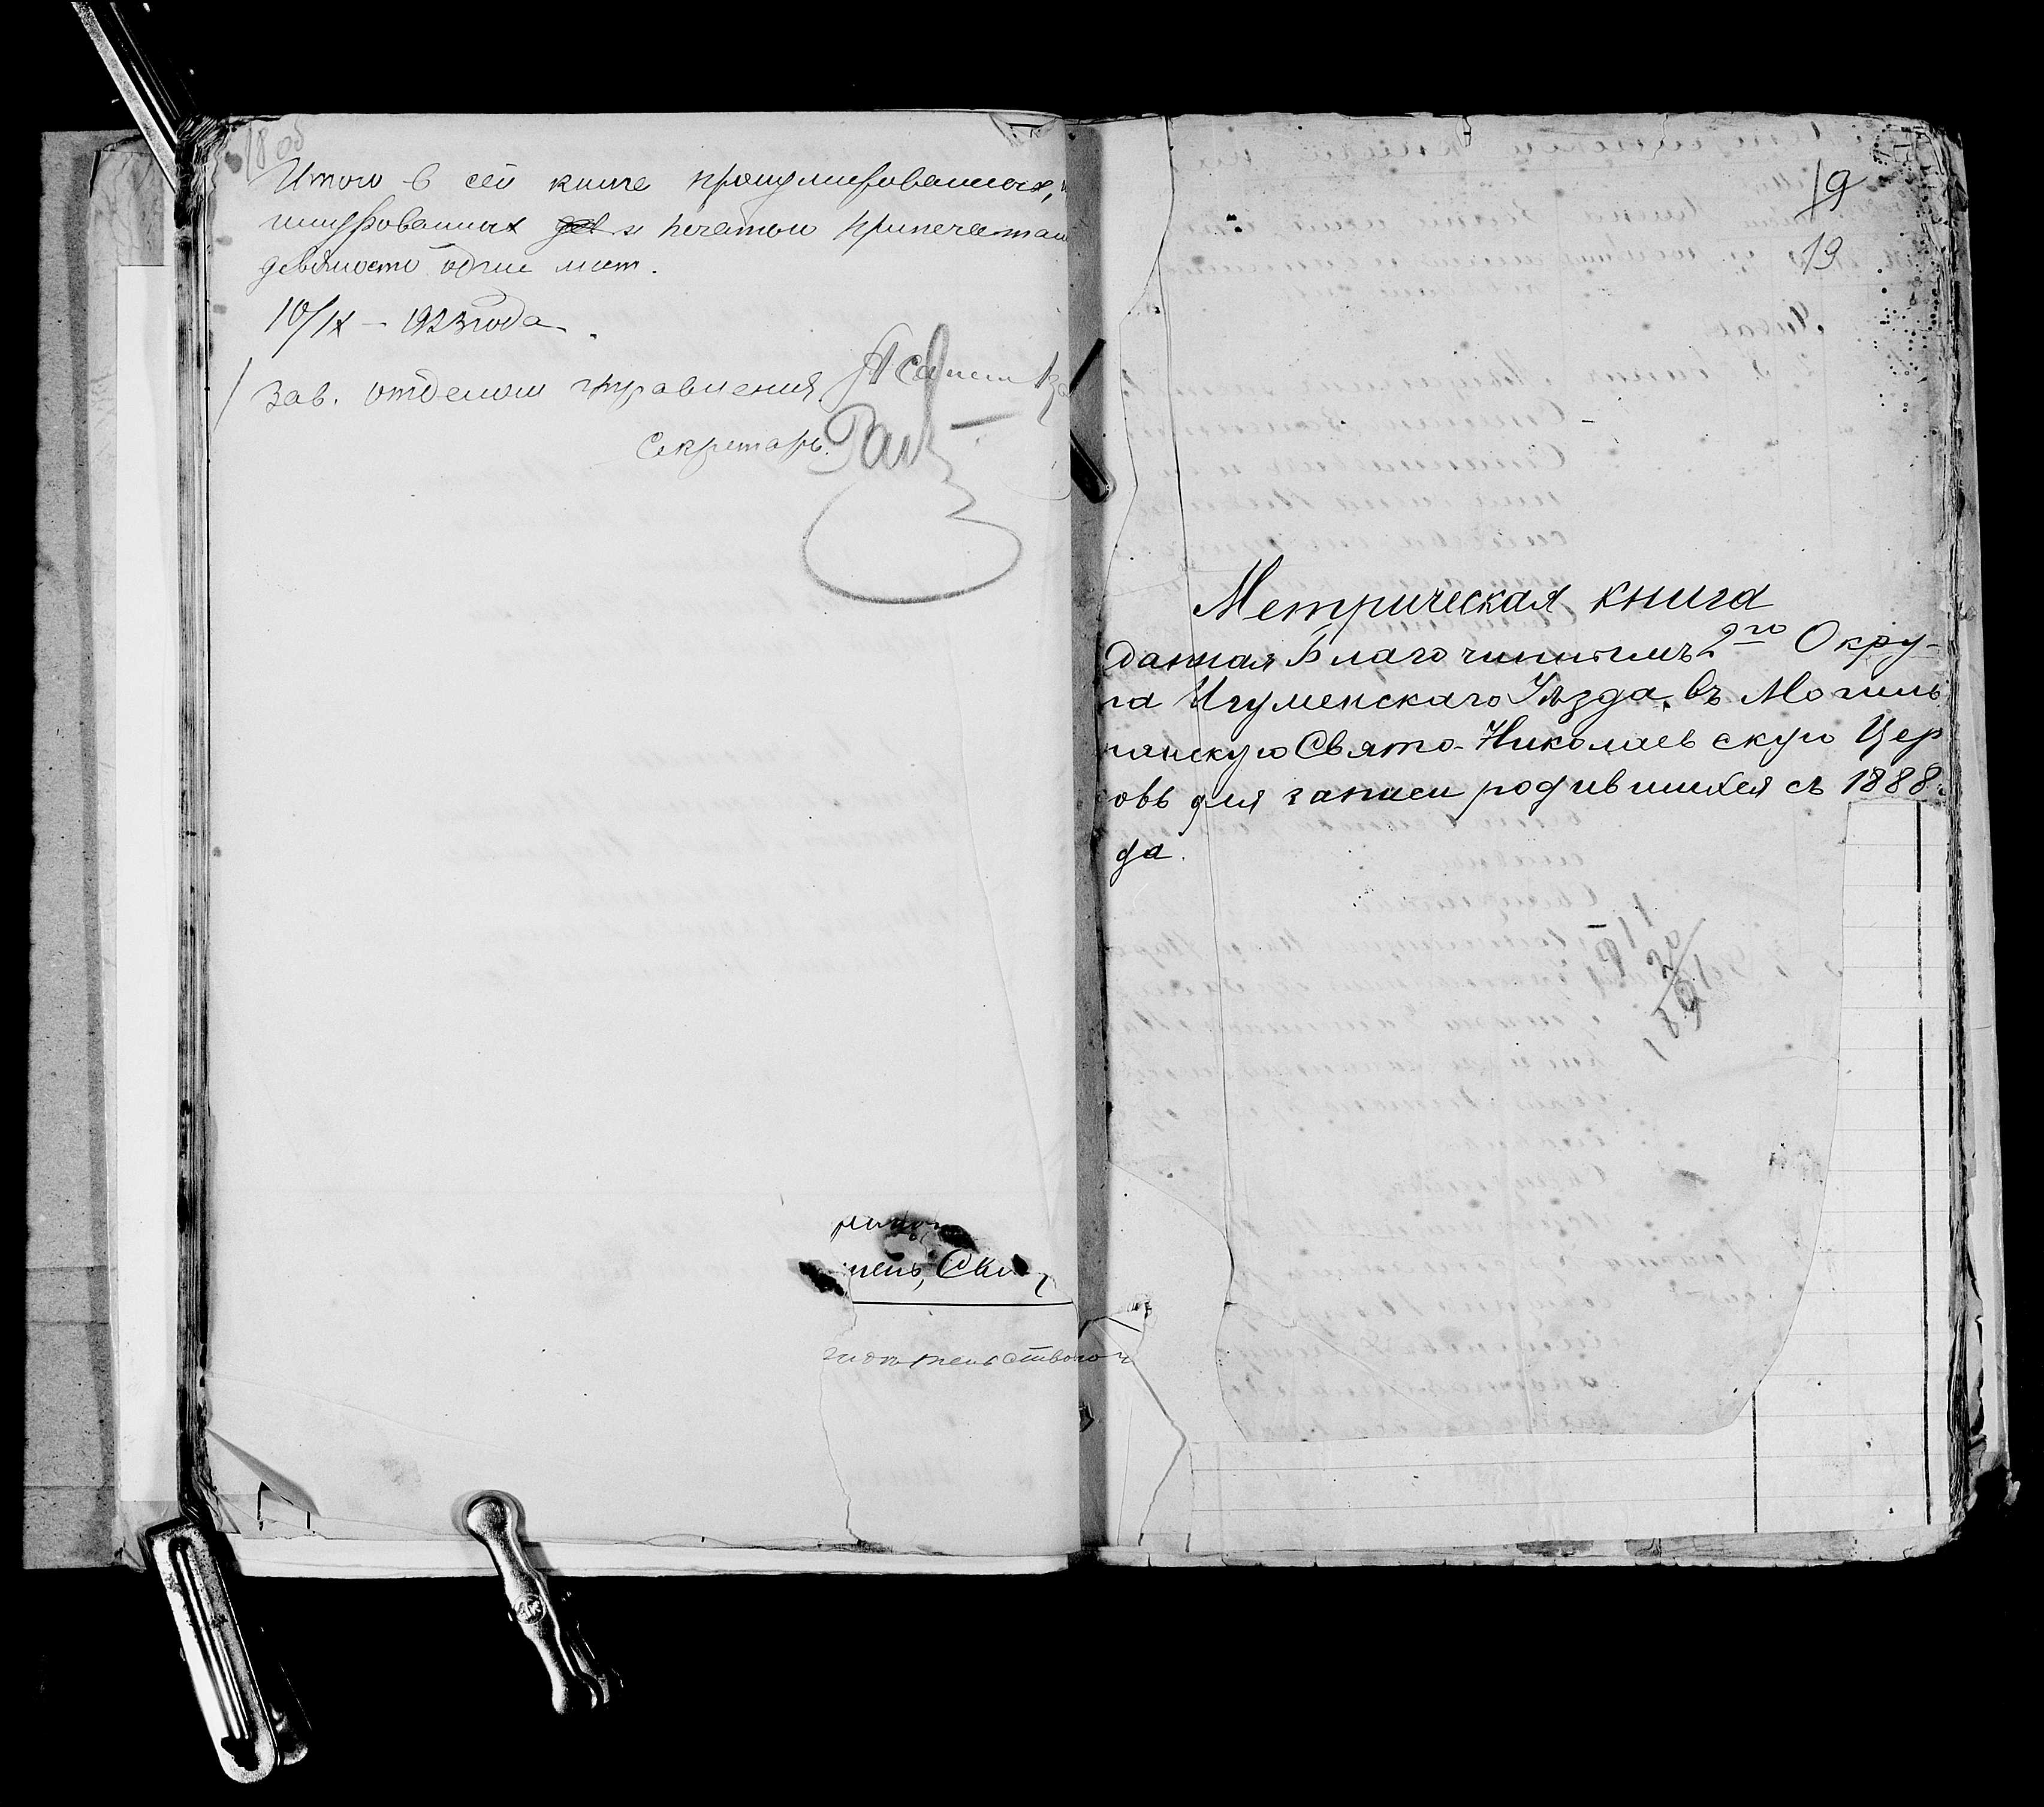 18 об
Итого в сей книге пронумерованных,
шнурованных и печатью припечатан
девяносто один лист.
10/IX – 1923 года.
Зав. отделом управления
Секретарь
пень,
19
19
Метрическая книга
данная Благочиннымъ 2го Окру-
га Игуменскаго Уѣзда, въ Могиль
нянскую Свято-Николаевскую Цер
овь для записи родившихся съ 1888
да.